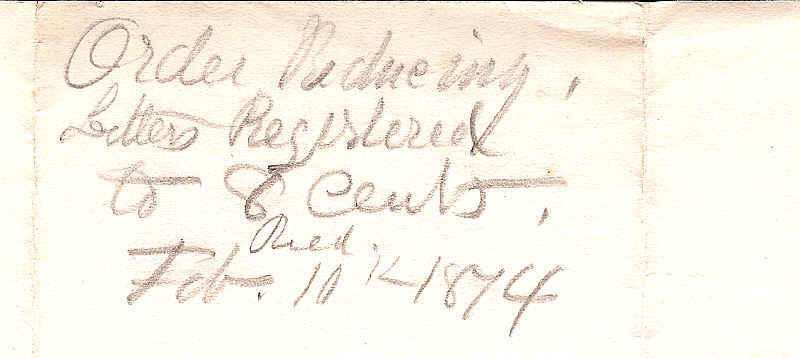 Order Reducing,
Letters Registered
to 8 Cents,
Recd.
Feb. 10th 1874